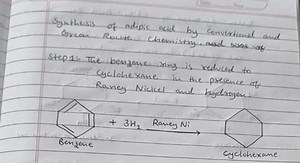 Synthesis of adipic acid by conventional and
Green Route Chemistry.
Step 1: The benzene ring is reduced to
cyclohexane in the presence of
Raney Nickel and hydrogen.
+ 3H₂ Raney Ni
Benzene
cyclohexane